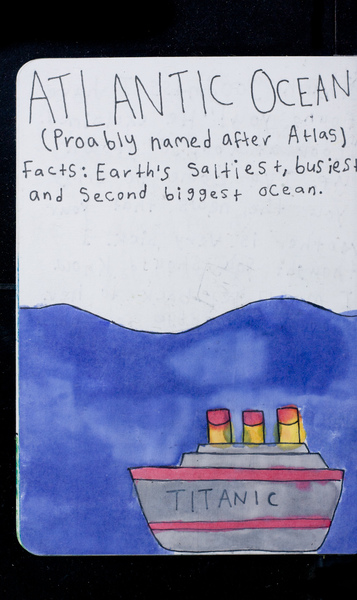 ATLANTIC OCEAN
(Proably named after Atlas)
Facts: Earth's Saltiest, busiest
and Second biggest ocean.
TITANIC